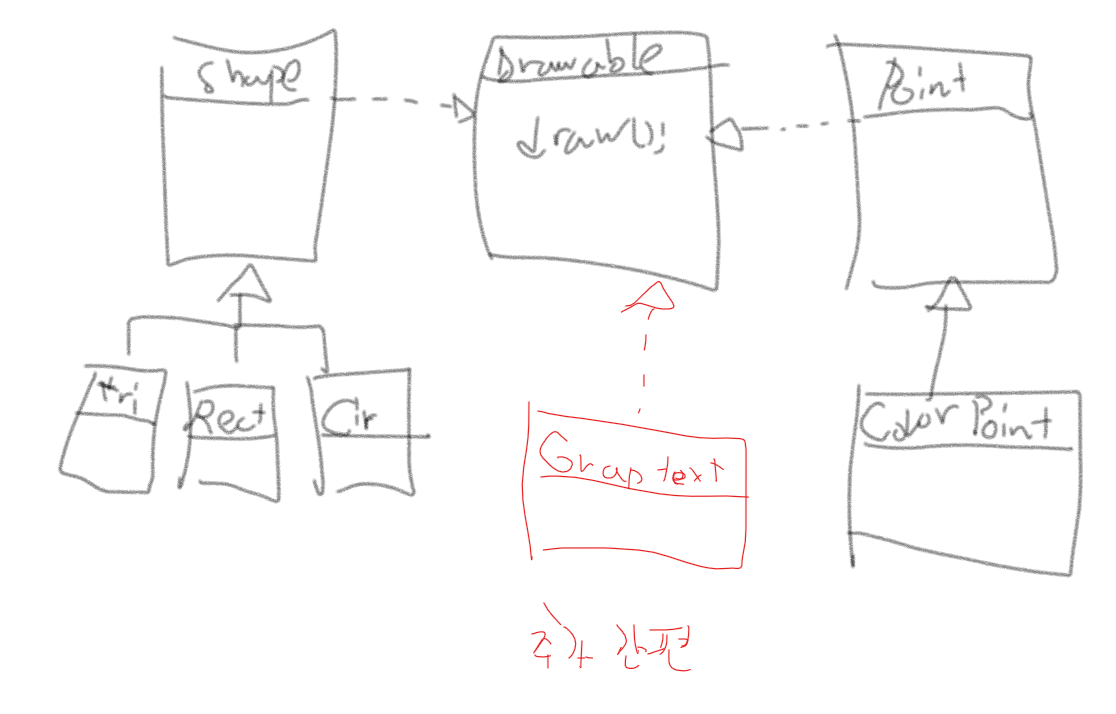 Shape
Drawable
draw();
Point
tri
Rect
Cir
Grap text
Color Point
추가 간편